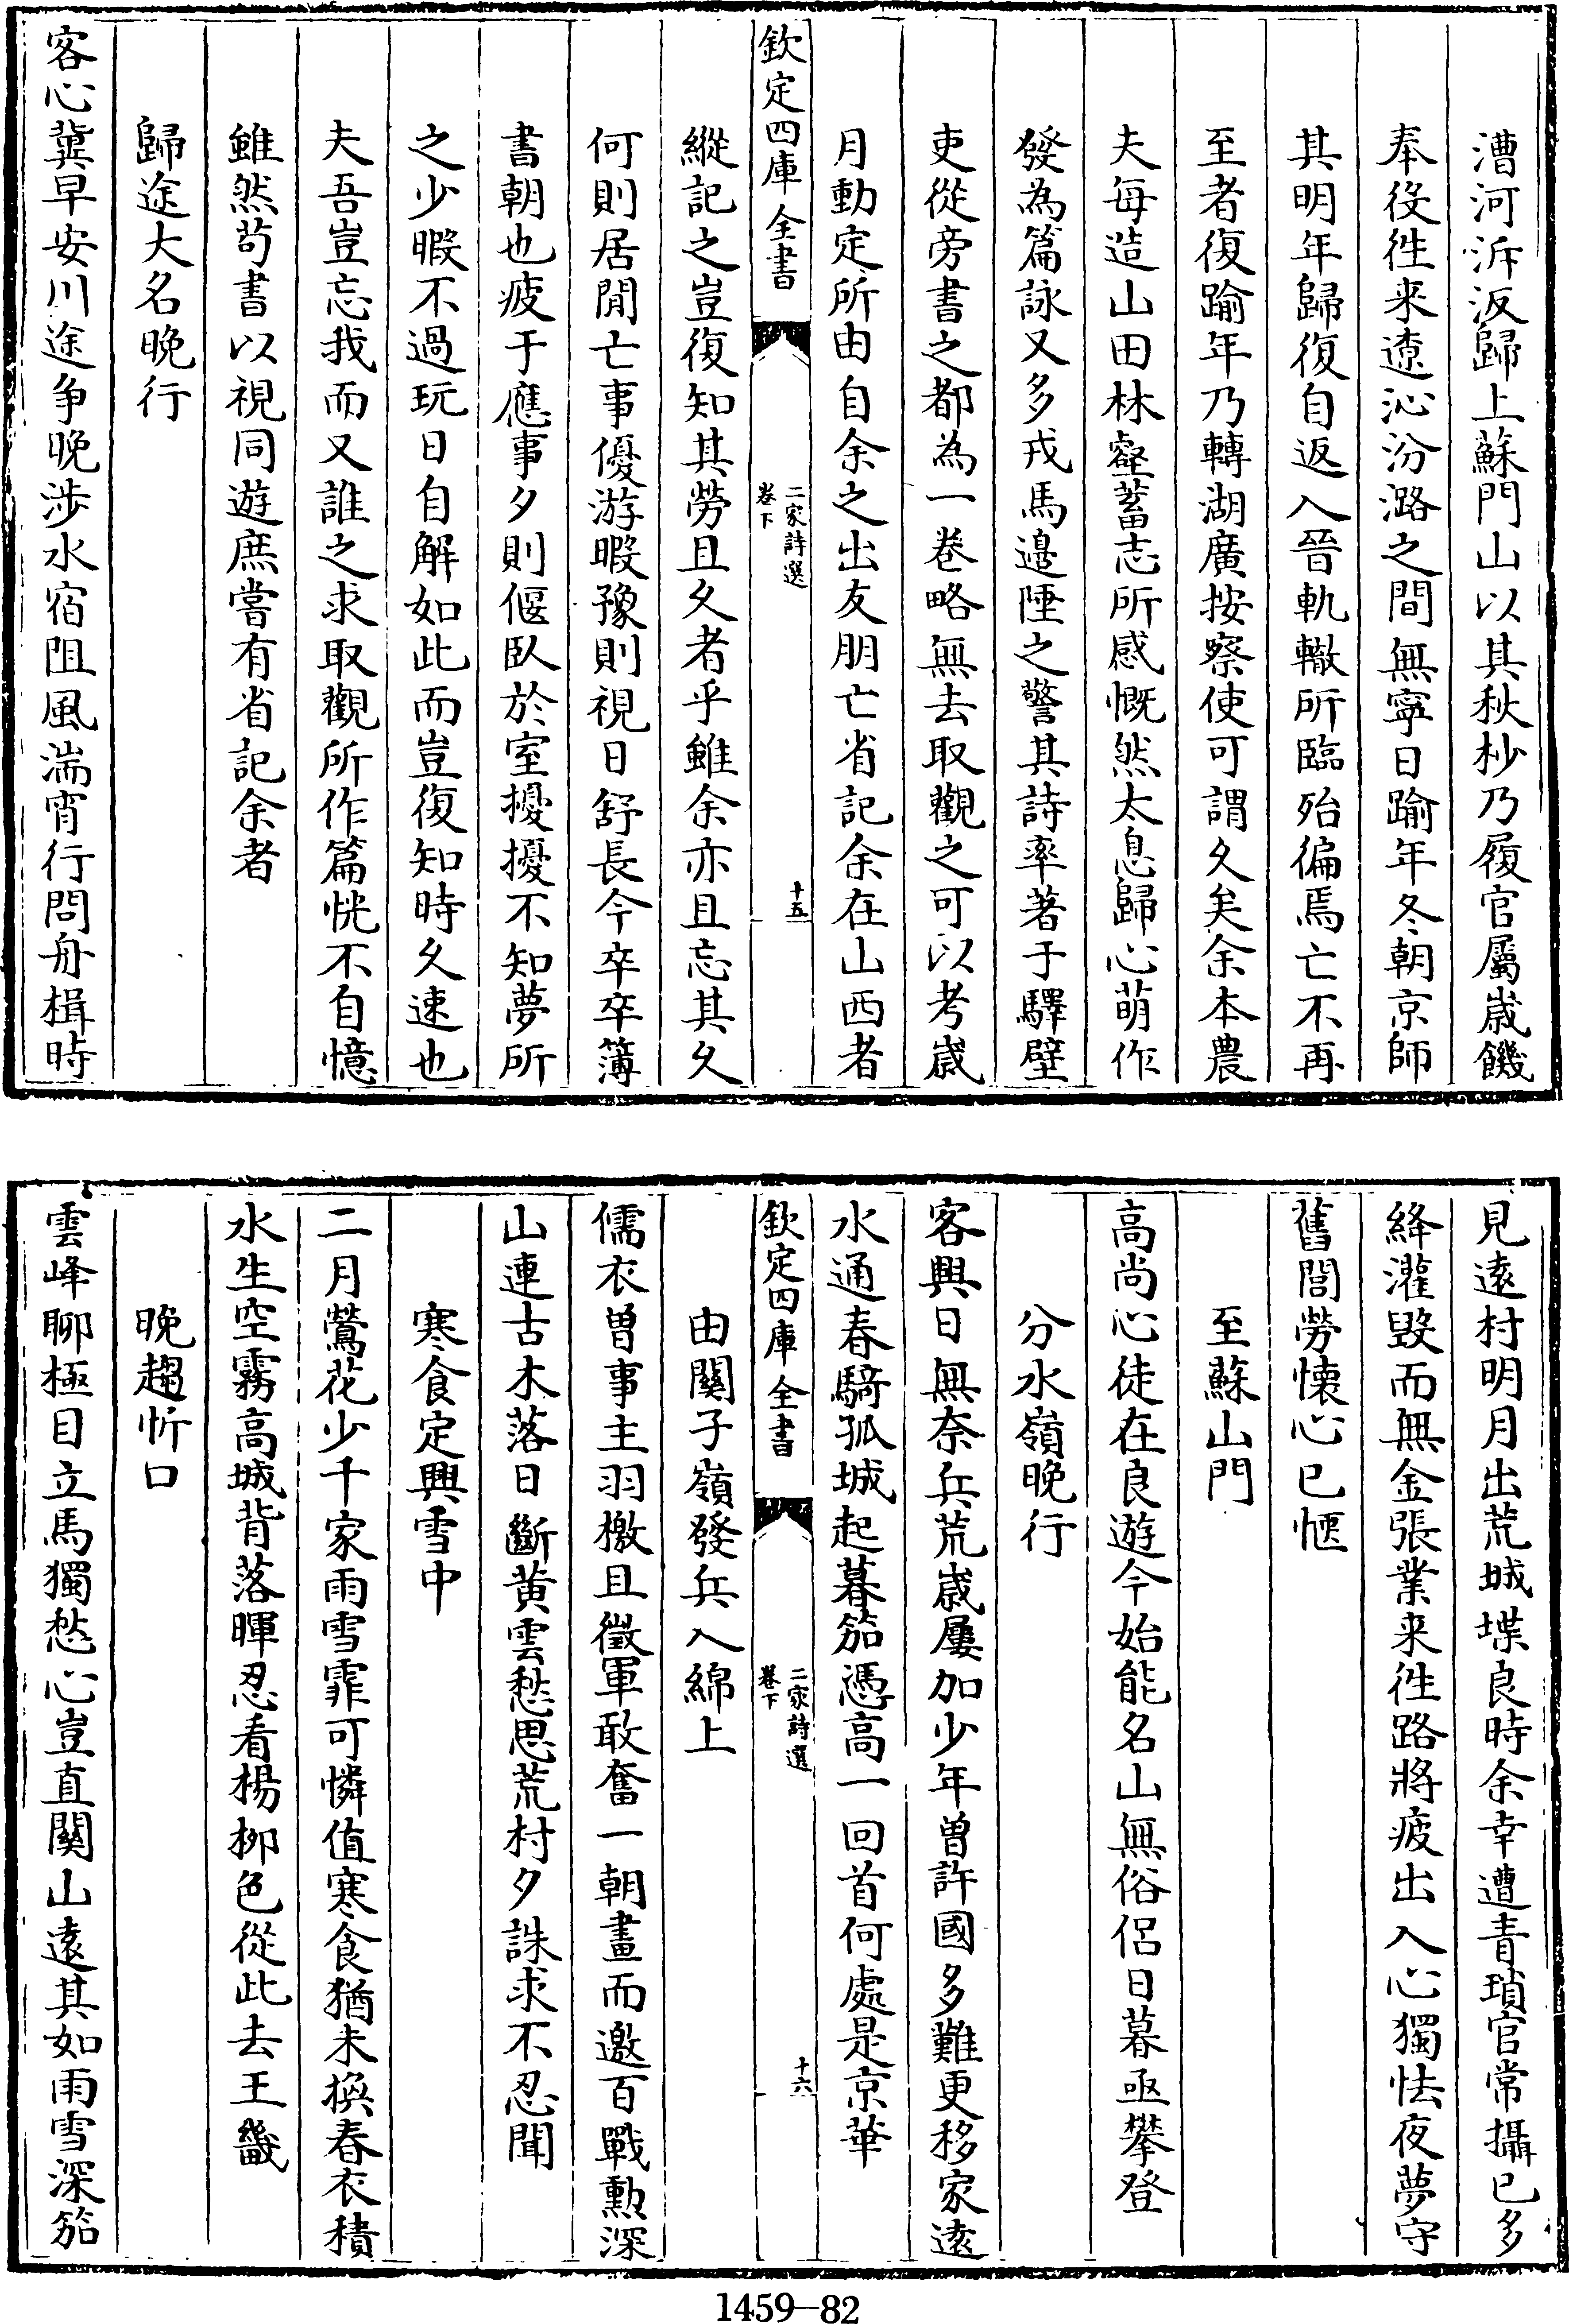 漕河泝汳歸上蘇門山以其秋杪乃履官屬歲饑
奉役徃来遼沁汾潞之間無寧日踰年冬朝京師
其明年歸復自返入晉軌轍所臨殆徧焉亡不再
至者復踰年乃轉湖廣按察使可謂久矣余本農
夫每造山田林壑蓄志所感慨然太息歸心萌作
發為篇詠又多戎馬邉陲之警其詩率著于驛壁
吏從旁書之都為一卷略無去取觀之可以考歲
月動定所由自余之出友朋亡省記余在山西者
欽定四庫全書
二家詩選
卷下
十五
縱記之豈復知其勞且久者乎雖余亦且忘其久
何則居閒亡事優游暇豫則視日舒長今卒卒簿
書朝也疲于應事夕則偃臥於室擾擾不知夢所
之少暇不過玩日自解如此而豈復知時久速也
夫吾豈忘我而又誰之求取觀所作篇恍不自憶
雖然茍書以視同遊庶嘗有省記余者
歸途大名晚行
客心冀早安川途争晚涉水宿阻風湍宵行問舟楫時
見遠村明月出荒城堞良時余幸遭青瑣官常攝已多
絳灌毀而無金張業来徃路將疲出入心獨怯夜夢守
舊閭勞懐心已愜
至蘇山門
高尚心徒在良遊今始能名山無俗侶日暮亟攀登
分水嶺晚行
客興日無奈兵荒歲屢加少年曽許國多難更移家遠
水通春騎孤城起暮笳憑高一回首何處是京華
欽定四庫全書
二家詩選
卷下
十六
由關子嶺發兵入綿上
儒衣曽事主羽檄且徵軍敢奮一朝畫而邀百戰勲深
山連古木落日斷黄雲愁思荒村夕誅求不忍聞
寒食定興雪中
二月鶯花少千家雨雪霏可憐值寒食猶未換春衣積
水生空霧高城背落暉忍看楊栁色從此去王畿
晚趨忻口
雲峰聊極目立馬獨愁心豈直關山遠其如雨雪深笳
1459—82